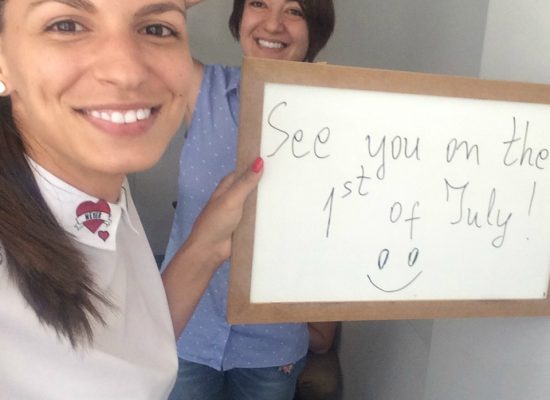 See you on the
1st of July!